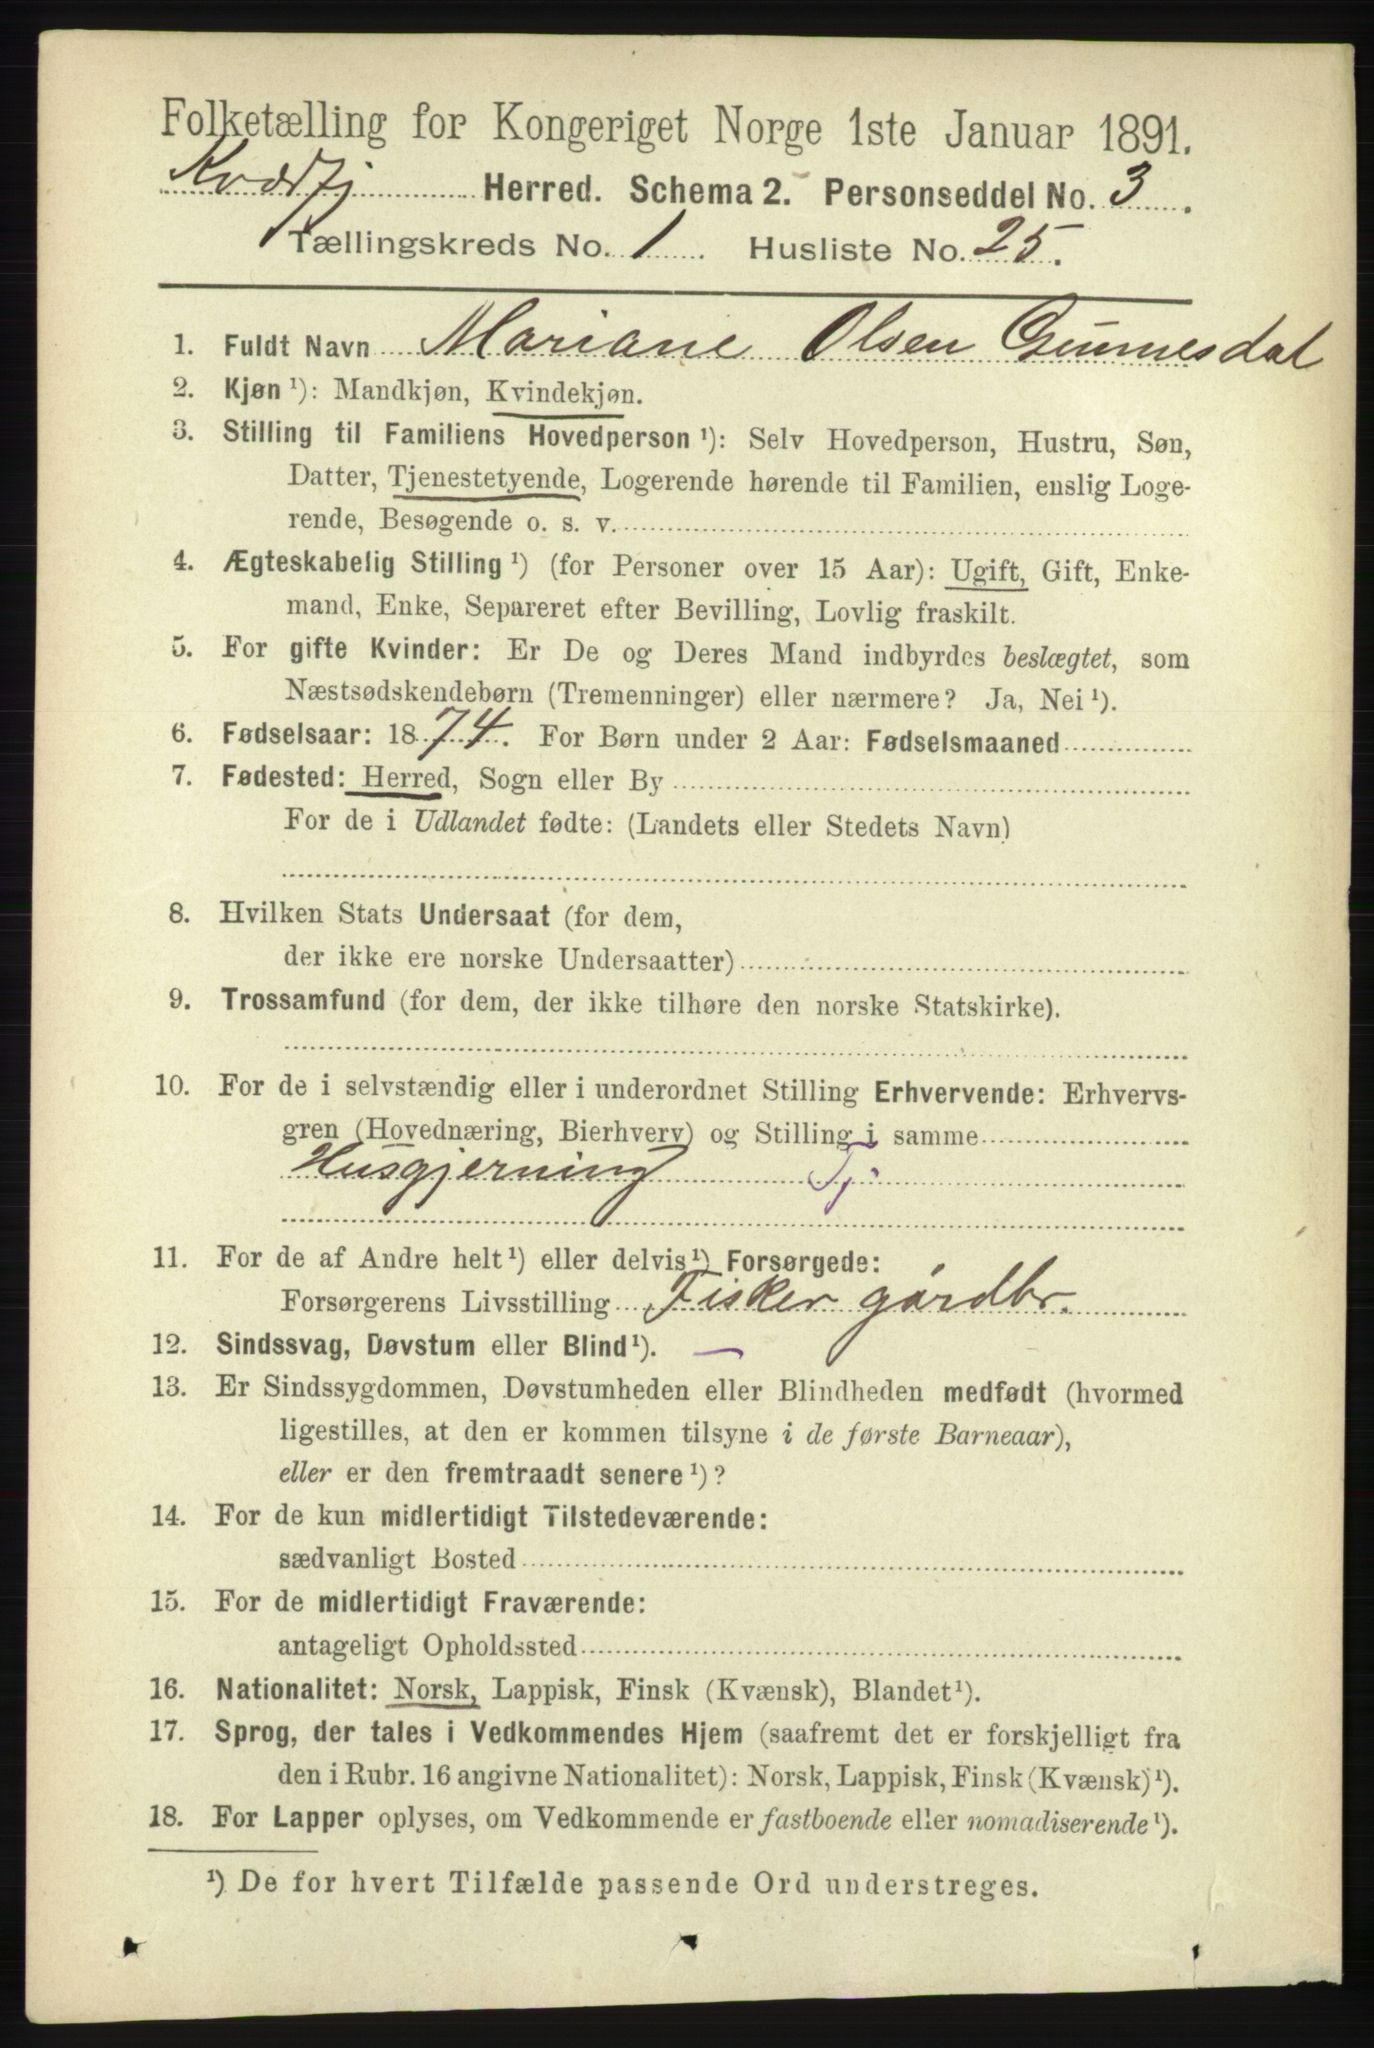 Folketælling for Kongeriget Norge 1ste Januar 1891.
Kvædfj Herred. Schema 2. Personseddel No. 3.
Tællingskreds No. 1 Husliste No. 25.
1. Fuldt Navn Mariane Olsen Gunnesdal
2. Kjøn ¹): Mandkjøn, Kvindekjøn.
3. Stilling til Familiens Hovedperson ¹): Selv Hovedperson, Hustru, Søn,
Datter, Tjenestetyende, Logerende hørende til Familien, enslig Loge-
rende, Besøgende o. s. v.
4. Ægteskabelig Stilling ¹) (for Personer over 15 Aar): Ugift, Gift, Enke-
mand, Enke, Separeret efter Bevilling, Lovlig fraskilt.
5. For gifte Kvinder: Er De og Deres Mand indbyrdes beslægtet, som
Næstsødskendebørn (Tremenninger) eller nærmere? Ja, Nei ¹).
6. Fødselsaar: 1874. For Børn under 2 Aar: Fødselsmaaned
7. Fødested: Herred, Sogn eller By
For de i Udlandet fødte: (Landets eller Stedets Navn)
8. Hvilken Stats Undersaat (for dem,
der ikke ere norske Undersaatter)
9. Trossamfund (for dem, der ikke tilhøre den norske Statskirke).
10. For de i selvstændig eller i underordnet Stilling Erhvervende: Erhvervs-
gren (Hovednæring, Bierhverv) og Stilling i samme
Husgjerning Tj.
11. For de af Andre helt ¹) eller delvis ¹) Forsørgede:
Forsørgerens Livsstilling Fisker gårdbr.
12. Sindssvag, Døvstum eller Blind ¹). —
13. Er Sindssygdommen, Døvstumheden eller Blindheden medfødt (hvormed
ligestilles, at den er kommen tilsyne i de første Barneaar),
eller er den fremtraadt senere ¹)?
14. For de kun midlertidigt Tilstedeværende:
sædvanligt Bosted
15. For de midlertidigt Fraværende:
antageligt Opholdssted
16. Nationalitet: Norsk, Lappisk, Finsk (Kvænsk), Blandet ¹).
17. Sprog, der tales i Vedkommendes Hjem (saafremt det er forskjelligt fra
den i Rubr. 16 angivne Nationalitet): Norsk, Lappisk, Finsk (Kvænsk) ¹).
18. For Lapper oplyses, om Vedkommende er fastboende eller nomadiserende ¹).
¹) De for hvert Tilfælde passende Ord understreges.